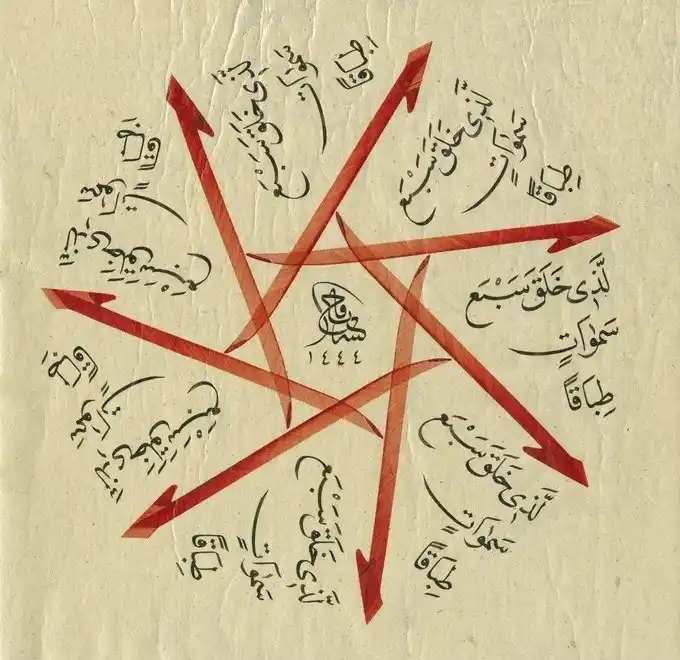 الَّذِى خَلَقَ سَبْعَ
سَمٰوَاتٍ
طِبَاقًا
الَّذِى خَلَقَ سَبْعَ
سَمٰوَاتٍ
طِبَاقًا
الَّذِى خَلَقَ سَبْعَ
سَمٰوَاتٍ
طِبَاقًا
الَّذِى خَلَقَ سَبْعَ
سَمٰوَاتٍ
طِبَاقًا
الَّذِى خَلَقَ سَبْعَ
سَمٰوَاتٍ
طِبَاقًا
الَّذِى خَلَقَ سَبْعَ
سَمٰوَاتٍ
طِبَاقًا
الَّذِى خَلَقَ سَبْعَ
سَمٰوَاتٍ
طِبَاقًا
١٤٤٤